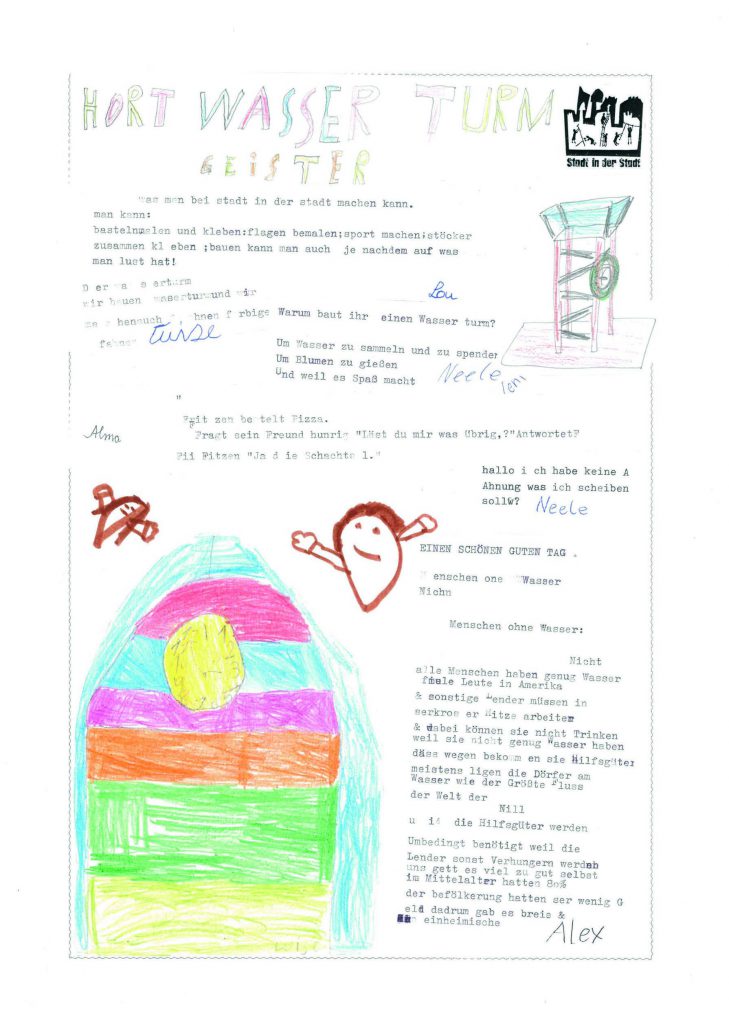 HORT WASSER TURM
GEISTER
Stadt in der Stadt
was man bei stadt in der stadt machen kann.
man kann:
bastelnmalen und kleben:flagen bemalen;sport machen;stöcker
zusammen kl eben ;bauen kann man auch je nachdem auf was
man lust hat!
wir bauen
Lou
Warum baut ihr einen Wasser turm?
Um Wasser zu sammeln und zu spenden
Um Blumen zu gießen
Und weil es Spaß macht
Neele
Alma
Pizza.
Fragt sein Freund hunrig "Läst du mir was übrig,?"Antwortet
Fitzen "Ja d ie Schachte l."
hallo i ch habe keine A
Ahnung was ich scheiben
sollw?
Neele
EINEN SCHÖNEN GUTEN TAG .
enschen one Wasser
Nichn
Menschen ohne Wasser:
Nicht
alle Menschen haben genug Wasser
Leute in Amerika
& sonstige Lender müssen in
serkros er Hitze arbeiten
& dabei können sie nicht Trinken
weil sie nicht genug Wasser haben
däss wegen bekomm en sie Hilfsgüter
meistens ligen die Dörfer am
Wasser wie der Größte Fluss
der Welt der
Nill
die Hilfsgüter werden
Umbedingt benötigt weil die
Lender sonst Verhungern werden
uns gett es viel zu gut selbst
im Mittelalter hatten 80%
der befölkerung hatten ser wenig G
eld dadrum gab es breis &
einheimische
Alex